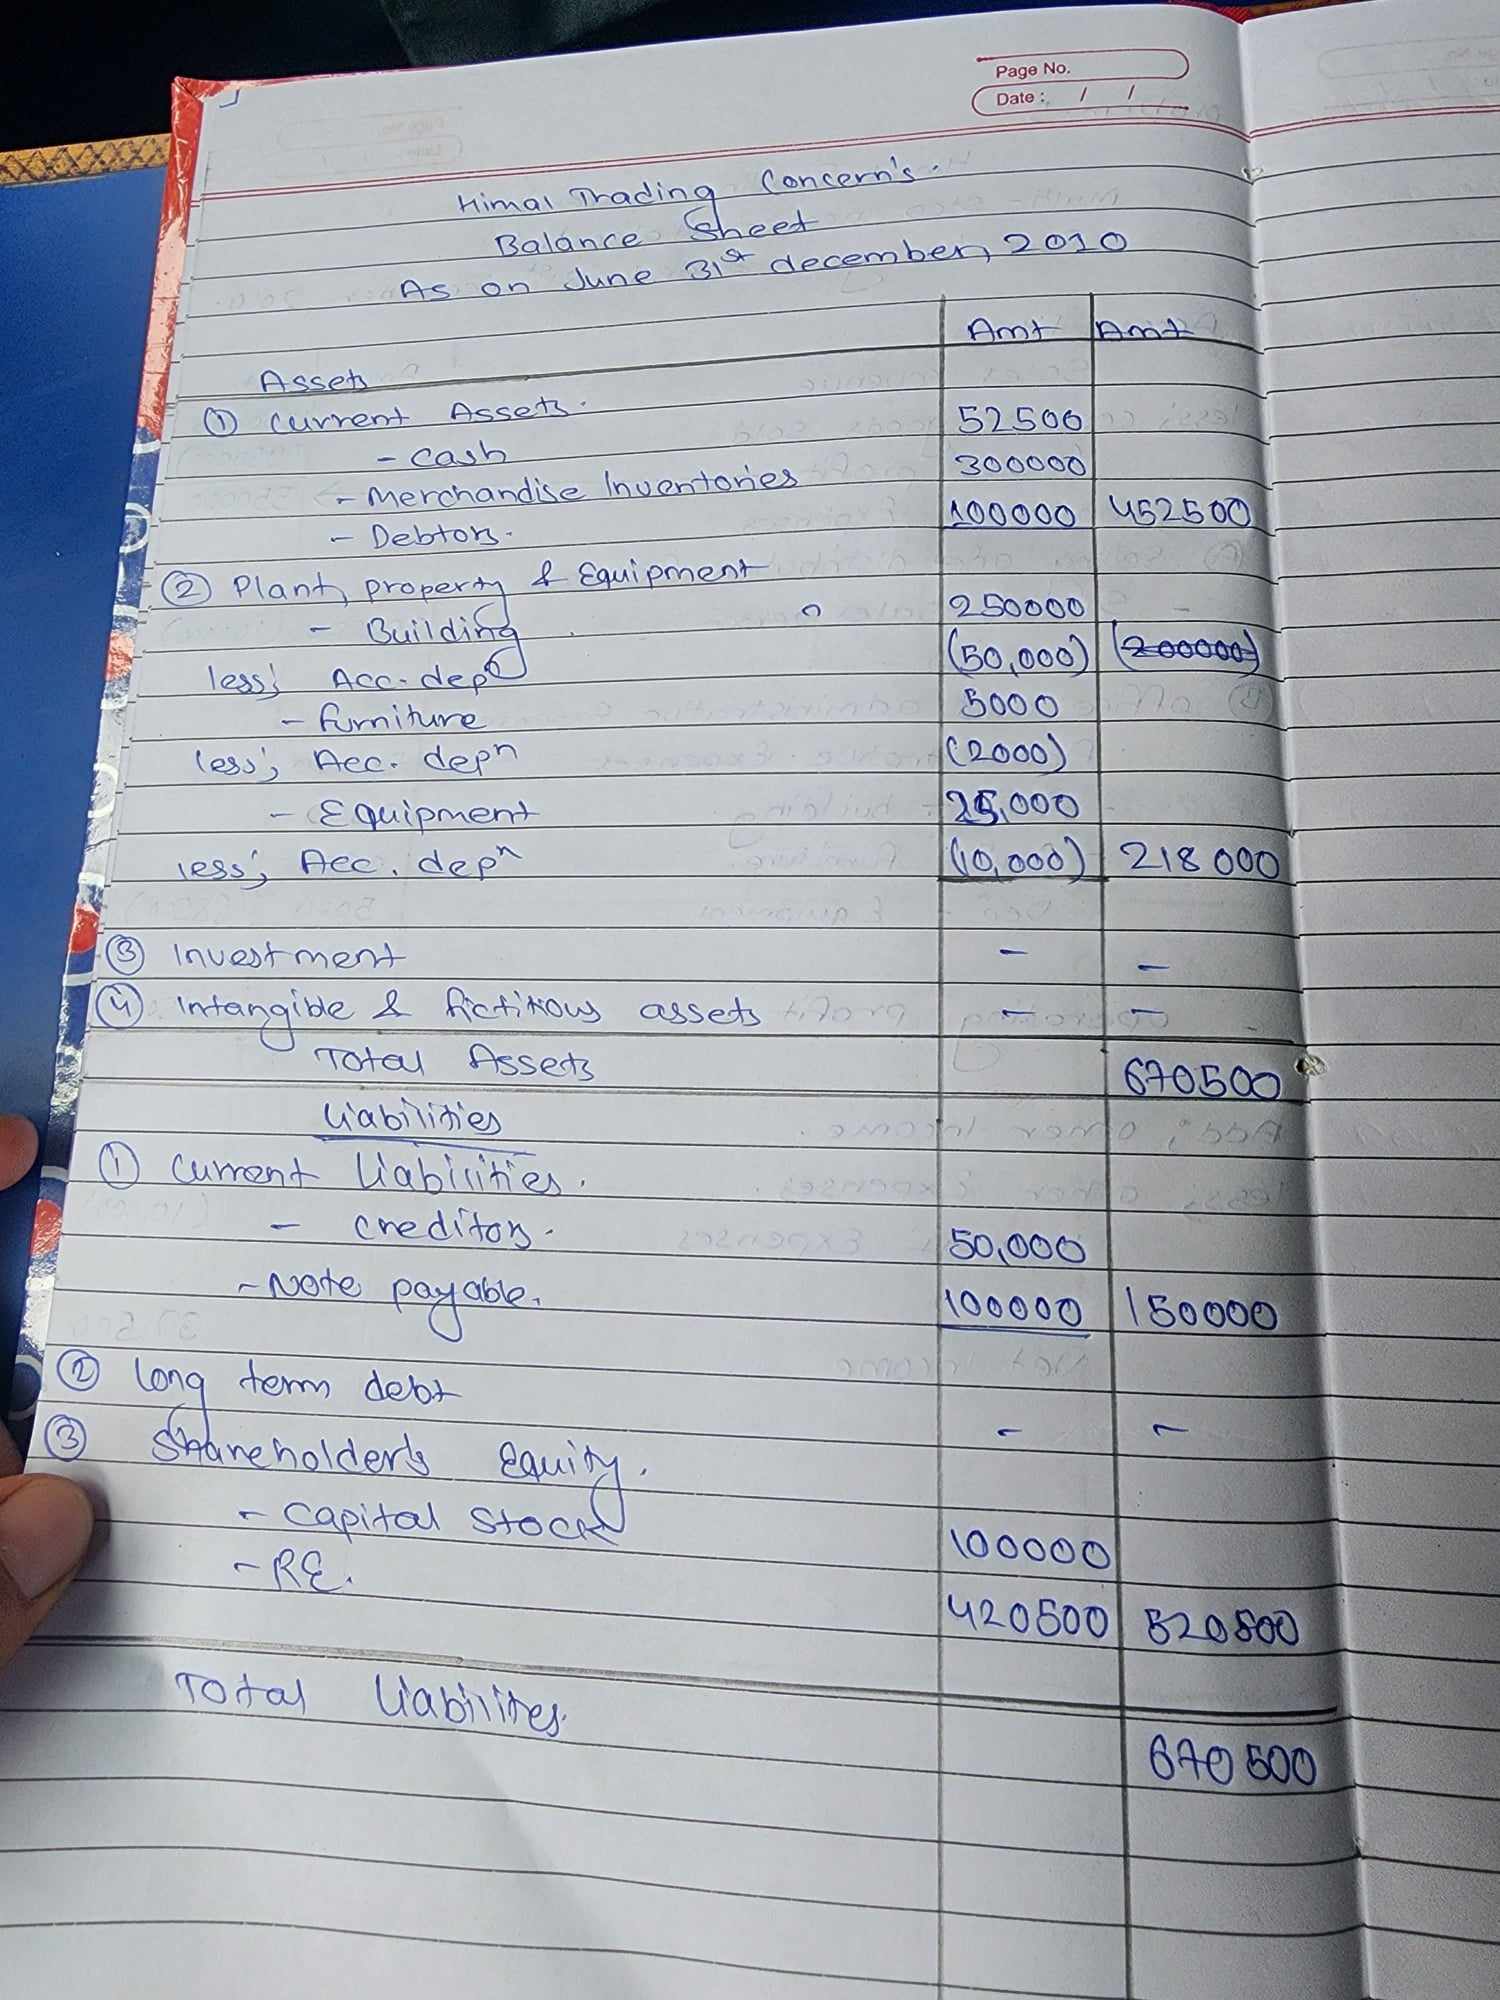 Page No.
Date : / /
Himal Trading Concern's.
Balance Sheet
As on June 31st december, 2010
Amt Amt
Assets
① Current Assets.
- Cash 52500
- Merchandise Inventories 300000
- Debtors. 100000 452500
② Plant, property & Equipment
- Building 250000 -
less; Acc. depn (50,000) (200000)
- furniture 5000
less; Acc. depn (2000)
- Equipment 25,000
less; Acc. depn (10,000) 218000
③ Investment - -
④ Intangible & fictitious assets - -
Total Assets 670500
Liabilities
① Current liabilities.
- Creditors. 50,000
- Note payable. 100000 150000
② Long term debt - -
③ Shareholder's Equity.
- Capital Stock 100000
- RE. 420500 520500
Total Liabilities. 670500